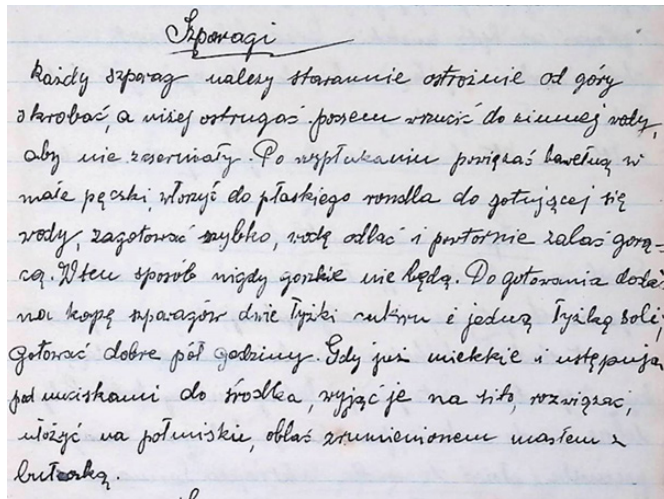 Szparagi
Każdy szparag należy starannie ostrożnie od góry
skrobać, a niżej ostrugać possem wrzucić do zimnej wody,
aby nie zczerniały. Po wypłukaniu powiązać bawełną w
małe pęczki, włożyć do płaskiego rondla do gotującej się
wody, zagotować szybko, wodę odlać i powtórnie zalać gorą-
cą. W ten sposób nigdy gorzkie nie będą. Do gotowania dodać
na kopę szparagów dwie łyżki cukru i jedną łyżkę soli;
gotować dobre pół godziny. Gdy już miekkie i ustępują
pod uciskami do środka, wyjąć je na sito, rozwiązać,
ułożyć na półmiskie, oblać zrumienionem masłem z
bułeczką.